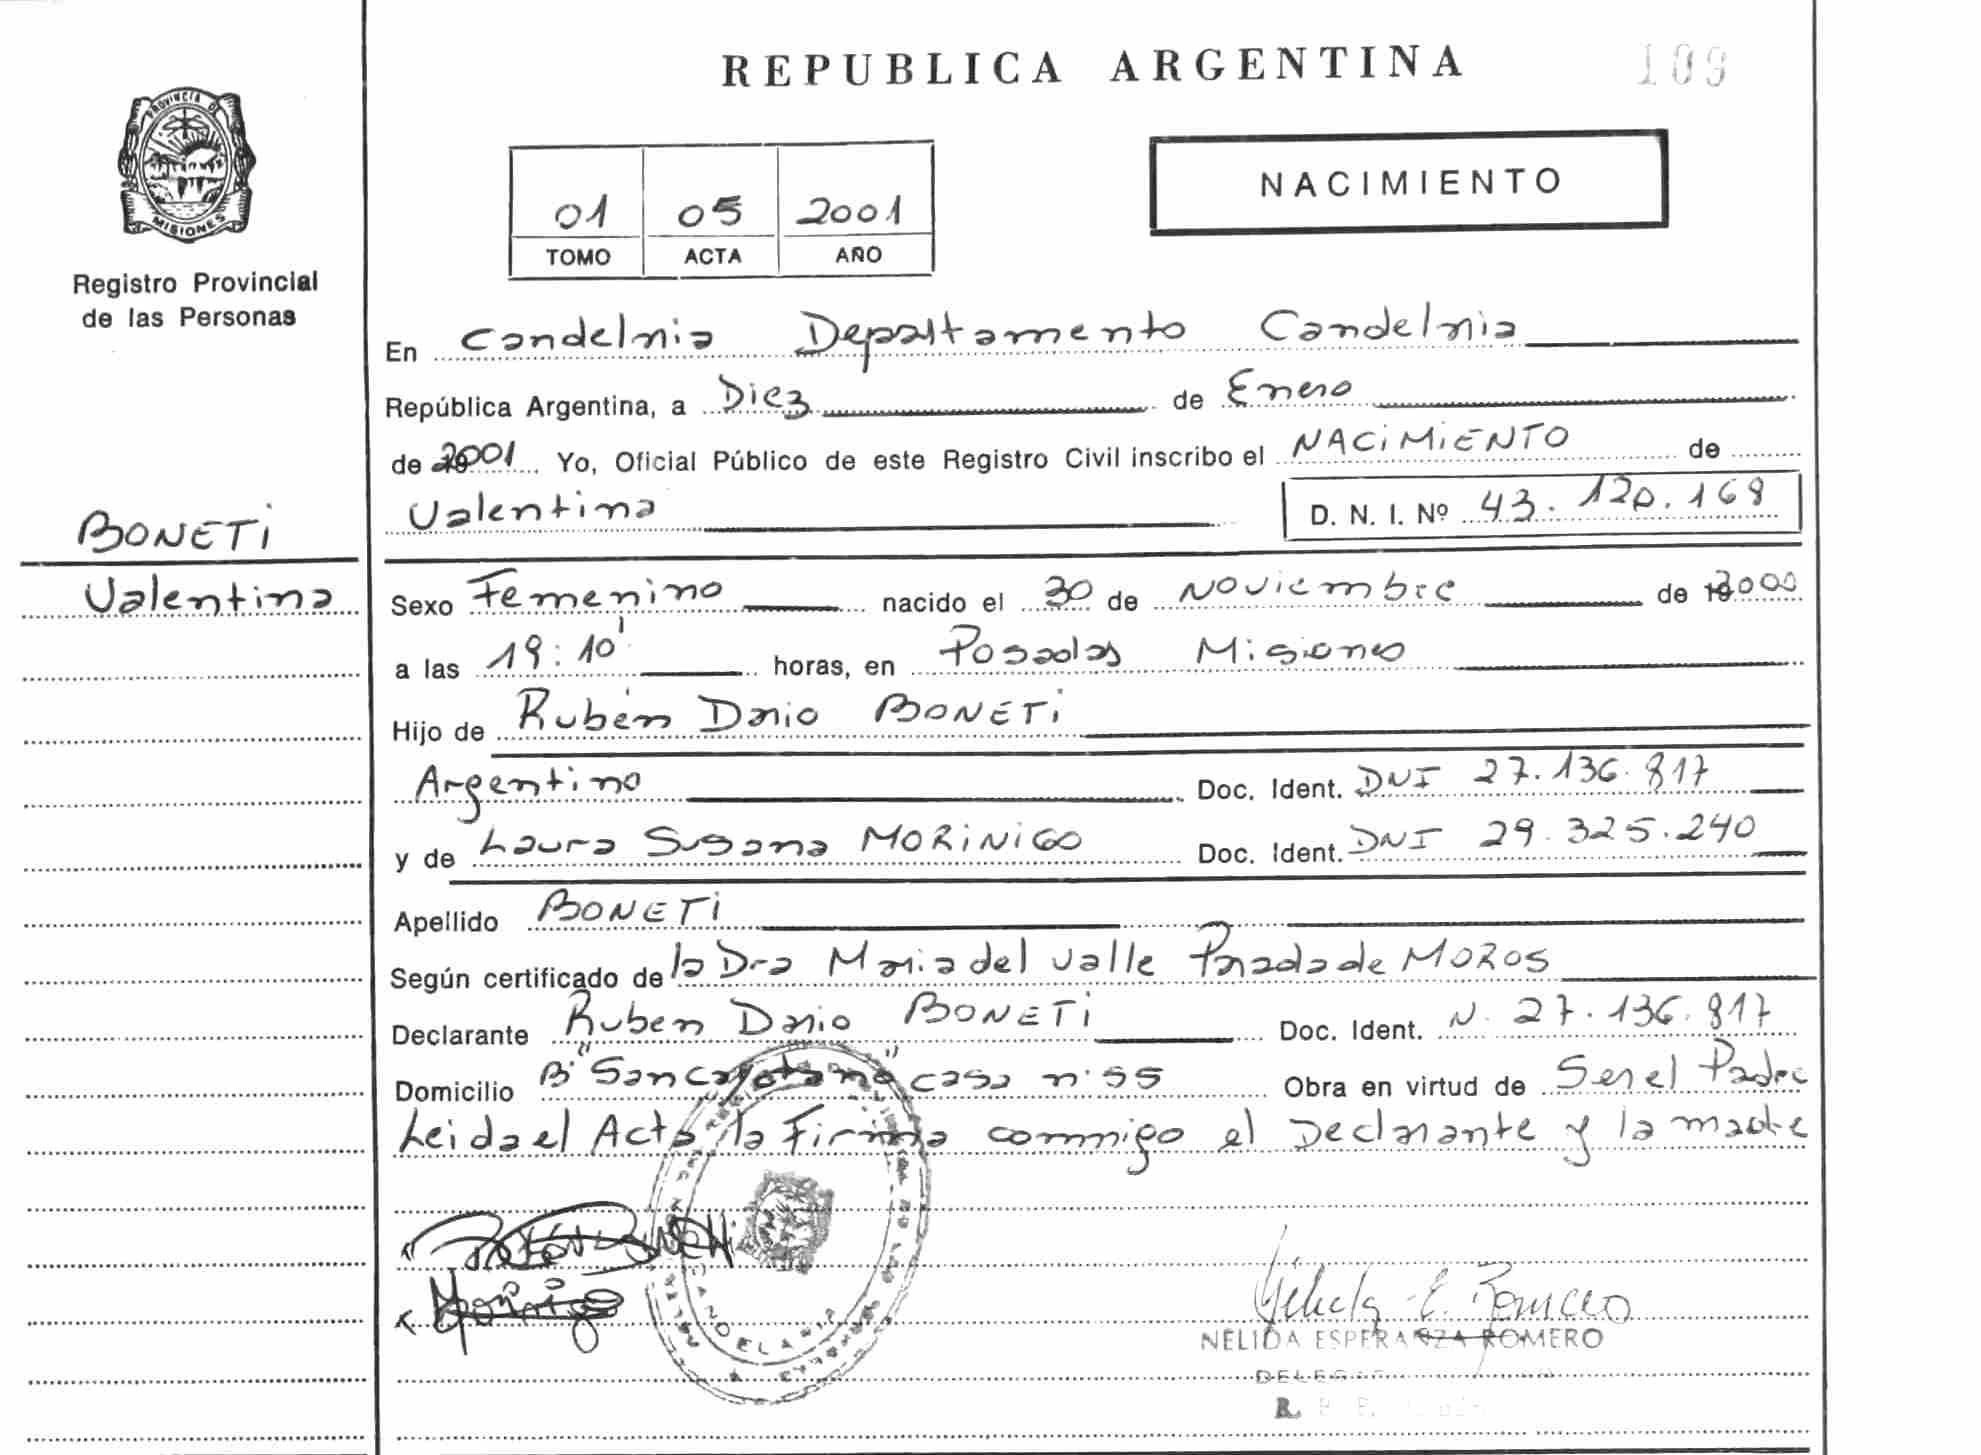 REPUBLICA ARGENTINA
109
PROVINCIA DE
MISIONES
Registro Provincial
de las Personas
01 05 2001
TOMO ACTA AÑO
NACIMIENTO
En Candelaria Departamento Candelaria
República Argentina, a Diez de Enero
de 2001 Yo, Oficial Público de este Registro Civil inscribo el NACIMIENTO de
Valentina D. N. I. Nº 43.120.168
BONETI
Valentina
Sexo Femenino nacido el 30 de Noviembre de 2000
a las 19:10' horas, en Posadas Misiones
Hijo de Rubén Dario BONETI
Argentino Doc. Ident. DNI 27.136.817
y de Laura Susana MORINIGO Doc. Ident. DNI 29.325.240
Apellido BONETI
Según certificado de la Dra Maria del Valle Parada de MOROS
Declarante Ruben Dario BONETI Doc. Ident. N. 27.136.817
Domicilio B° "San Cayetano" casa n° 55 Obra en virtud de Ser el Padre
Leida el Acta la Firma conmigo el Declarante y la madre
CANDELARIA
NELIDA ESPERANZA ROMERO